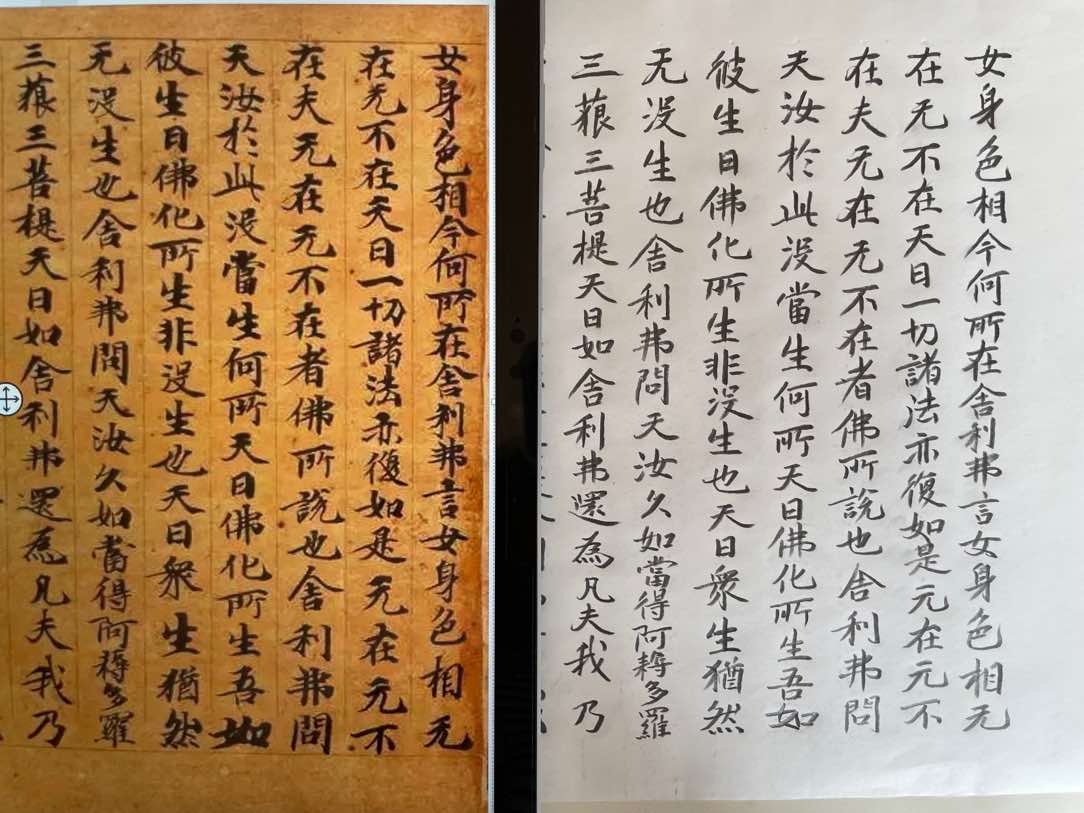 女身色相今何所在舍利弗言女身色相无
在无不在天曰一切諸法亦復如是无在无不
在夫无在无不在者佛所說也舍利弗問
天汝於此没當生何所天曰佛化所生吾如
彼生曰佛化所生非没生也天曰衆生猶然
无没生也舍利弗問天汝久如當得阿耨多羅
三藐三菩提天曰如舍利弗還為凡夫我乃
女身色相今何所在舍利弗言女身色相无
在无不在天曰一切諸法亦復如是元在元不
在夫无在无不在者佛所說也舍利弗問
天汝於此没當生何所天曰佛化所生吾如
彼生曰佛化所生非没生也天曰衆生猶然
无没生也舍利弗問天汝久如當得阿耨多羅
三藐三菩提天曰如舍利弗還為凡夫我乃